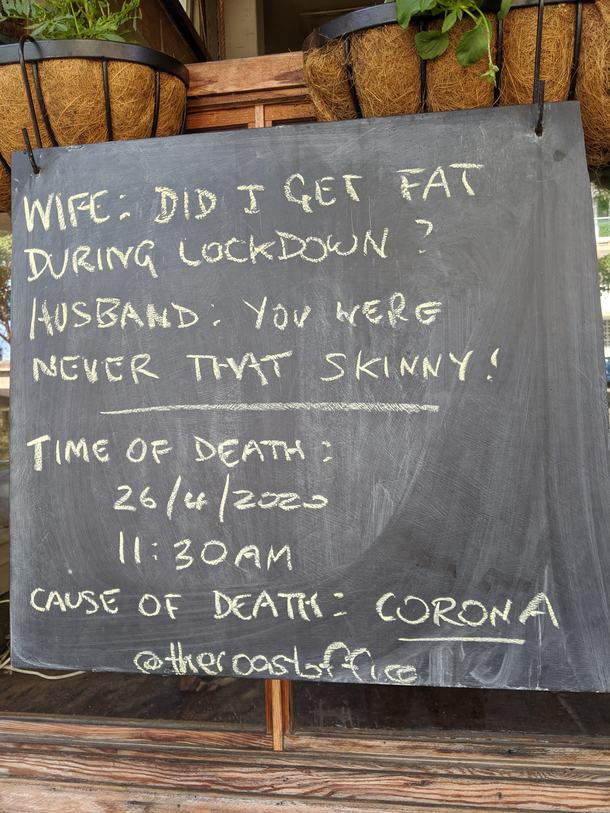 WIFE: DID I GET FAT
DURING LOCKDOWN ?
HUSBAND: YOU WERE
NEVER THAT SKINNY!
TIME OF DEATH:
26/4/2020
11:30AM
CAUSE OF DEATH: CORONA
@theroastoffice